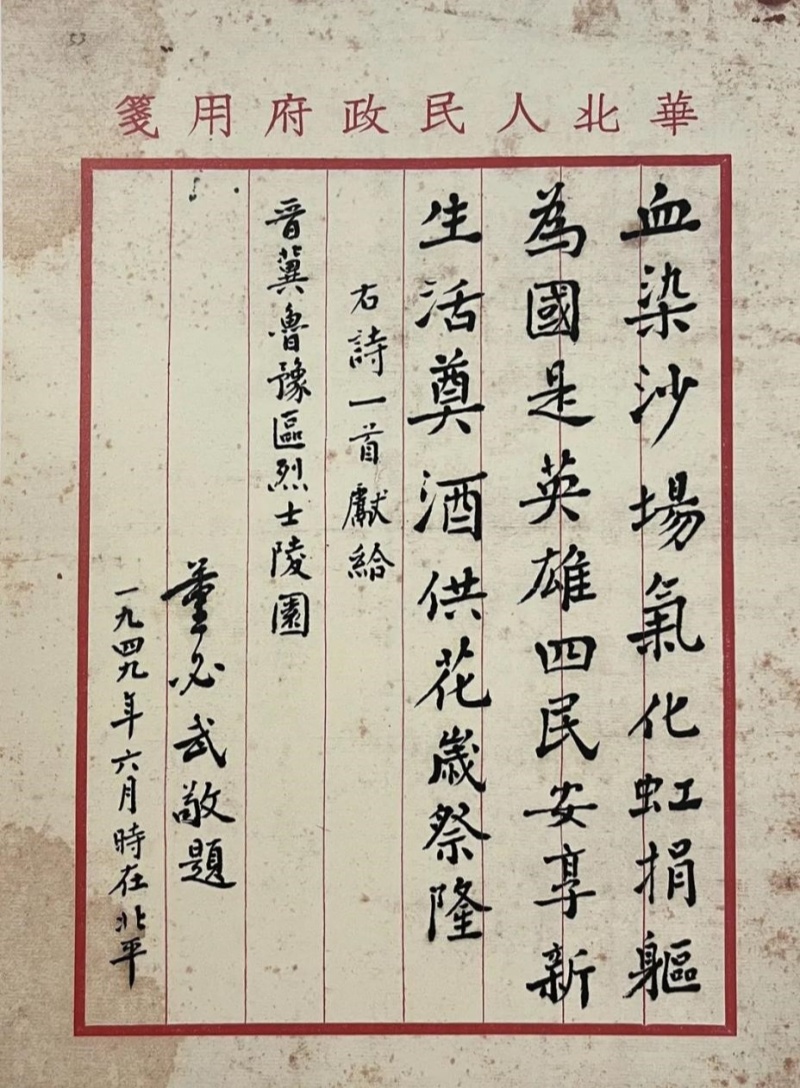 華北人民政府用箋
血染沙場氣化虹捐軀
為國是英雄四民安享新
生活奠酒供花歲祭隆
右詩一首獻給
晉冀魯豫區烈士陵園
董必武敬題
一九四九年六月時在北平
53